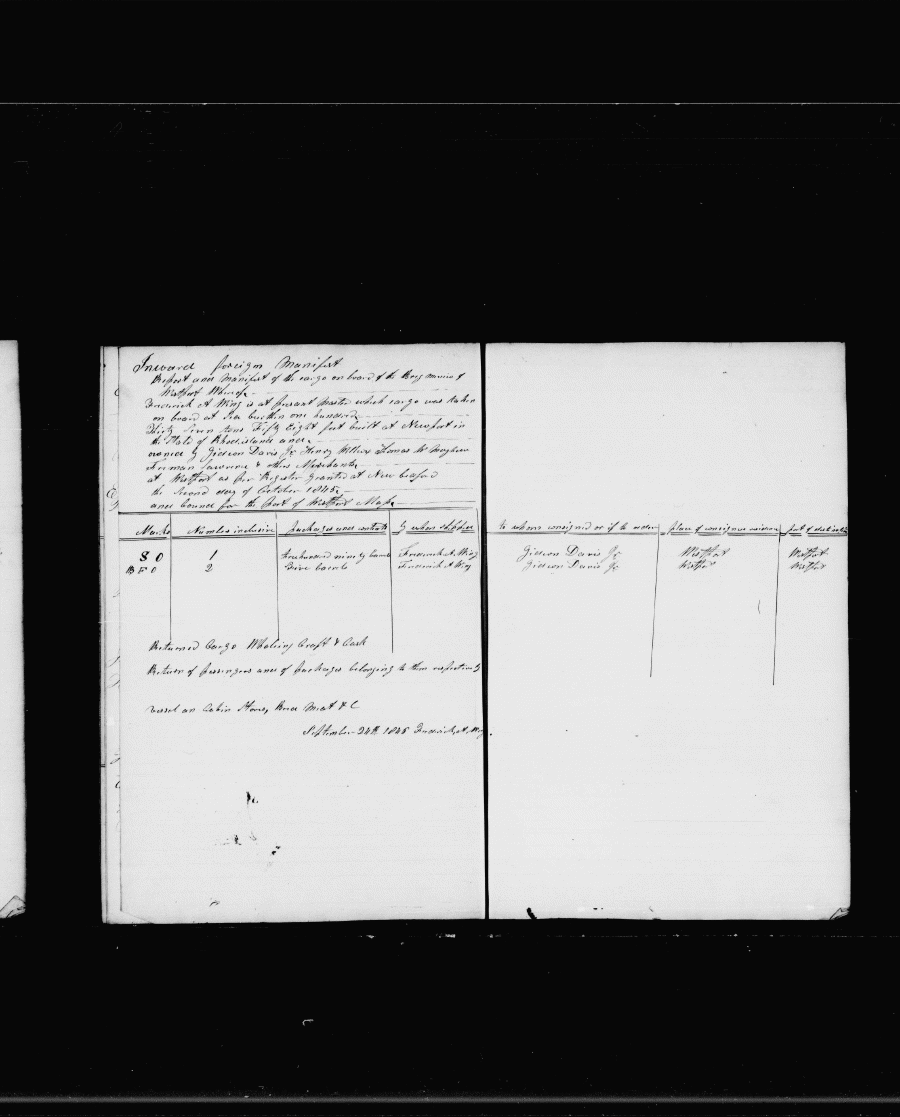 Inward foreign Manifest
Report and Manifest of the cargo on board of the Brig Mexico of
Westport Whereof
Frederick A Wing is at present Master which cargo was taken
on board at Sea burthen one hundred
Thirty Seven tons Fifty Eight feet built at Newport in
the State of Rhodeisland and
owned by Gideon Davis Jr Henry Willcox Thomas W Mayhew
Freeman Lawrence & others Merchants
at Westport as per Register Granted at New bedford
the Second day of October 1845
and bound for the Port of Westport Mass
Marks Numbers inclusive packages and contents By whom shipped to whom consigned or if to order place of consignees residence port of destination
S O 1 hundred ninety barrels Frederick A. Wing Gideon Davis Jr Westport Westport
B F O 2 Five barrels Frederick A Wing Gideon Davis Jr Westport Westport
Returned Cargo Whaling Craft & Cask
Return of passengers and of packages belonging to them respectively
vessel an Cabin Stores, Bread Meat & C
September 24th 184 Frederick A. Wing